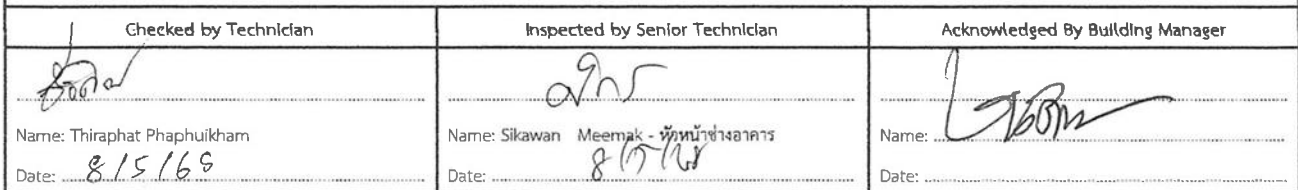 Checked by Technician
Inspected by Senior Technician
Acknowledged By Building Manager
Name: Thiraphat Phaphuikham
Name: Sikawan Meemak - หัวหน้าช่างอาคาร
Name:
Date: 8/5/68
Date:
Date: